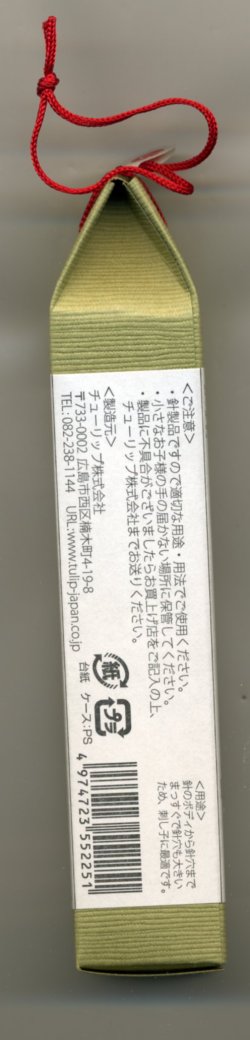 <ご注意>
・針製品ですので適切な用途・用法でご使用ください。
・小さなお子様の手の届かない場所に保管してください。
・製品に不具合がございましたらお買上げ店をご記入の上、
チューリップ株式会社までお送りください。
<製造元>
チューリップ株式会社
〒733-0002 広島市西区楠木町4-19-8
TEL:082-238-1144 URL:www.tulip-japan.co.jp
紙
プラ
台紙 ケース:PS
<用途>
針のボディから針穴まで
まっすぐで針穴も大きい
ため、刺し子に最適です。
4 974723 552251